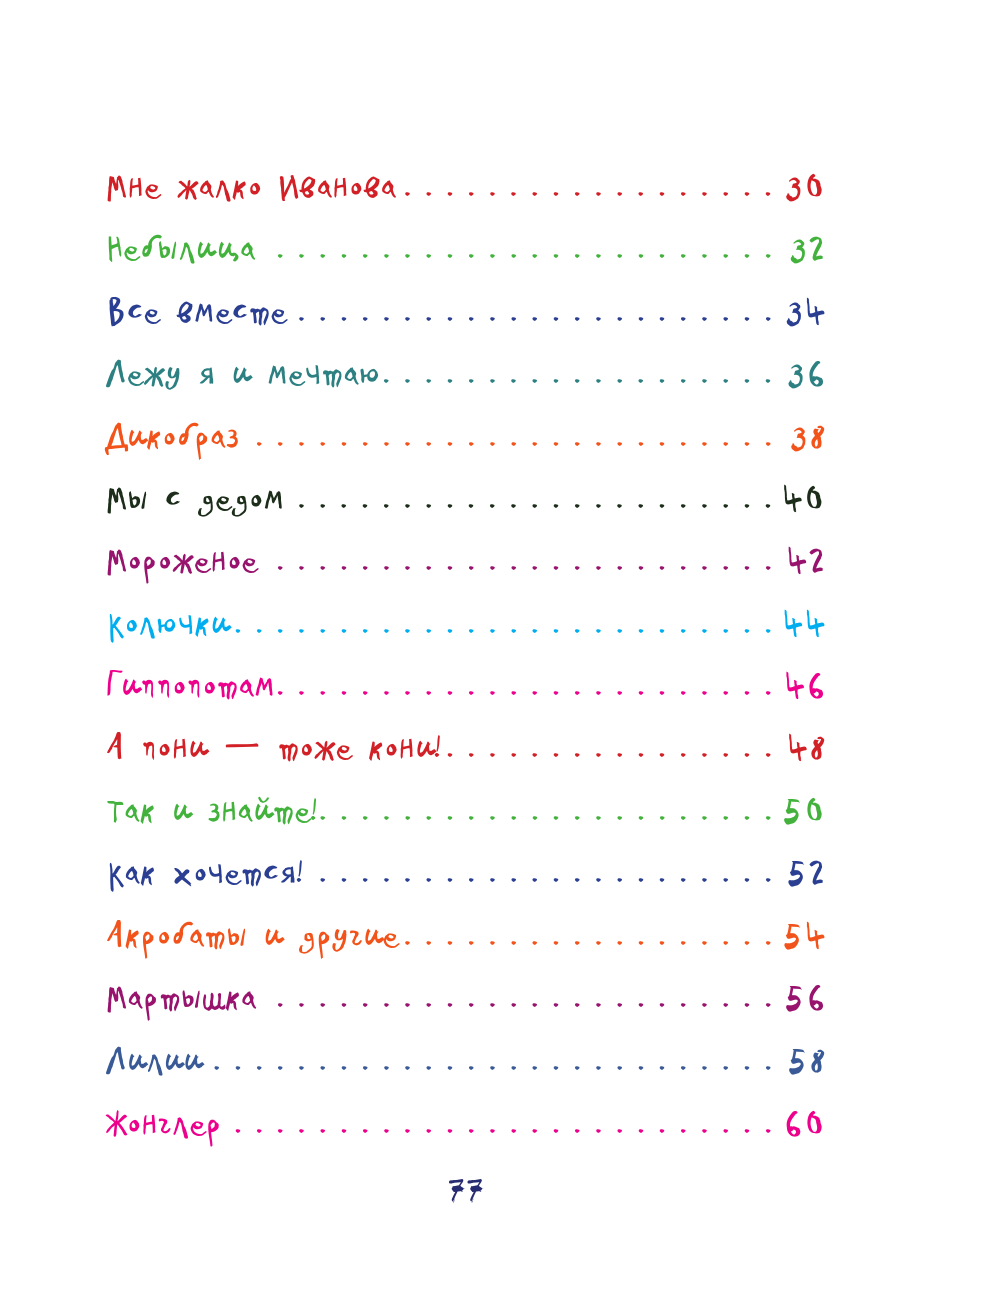 Мне жалко Иванова. . . . . . . . . . . . . . . . . . 30
Небылица . . . . . . . . . . . . . . . . . . . . . . . . 32
Все вместе . . . . . . . . . . . . . . . . . . . . . . . 34
Лежу я и мечтаю. . . . . . . . . . . . . . . . . . . 36
Дикобраз . . . . . . . . . . . . . . . . . . . . . . . . . 38
Мы с дедом . . . . . . . . . . . . . . . . . . . . . . . 40
Мороженое . . . . . . . . . . . . . . . . . . . . . . . . 42
Колючки. . . . . . . . . . . . . . . . . . . . . . . . . . 44
Гиппопотам. . . . . . . . . . . . . . . . . . . . . . . . 46
А пони — тоже кони!. . . . . . . . . . . . . . . . 48
Так и знайте!. . . . . . . . . . . . . . . . . . . . . . 50
Как хочется! . . . . . . . . . . . . . . . . . . . . . . 52
Акробаты и другие. . . . . . . . . . . . . . . . . . 54
Мартышка . . . . . . . . . . . . . . . . . . . . . . . . 56
Лилии . . . . . . . . . . . . . . . . . . . . . . . . . . . 58
Жонглер . . . . . . . . . . . . . . . . . . . . . . . . . . 60
77